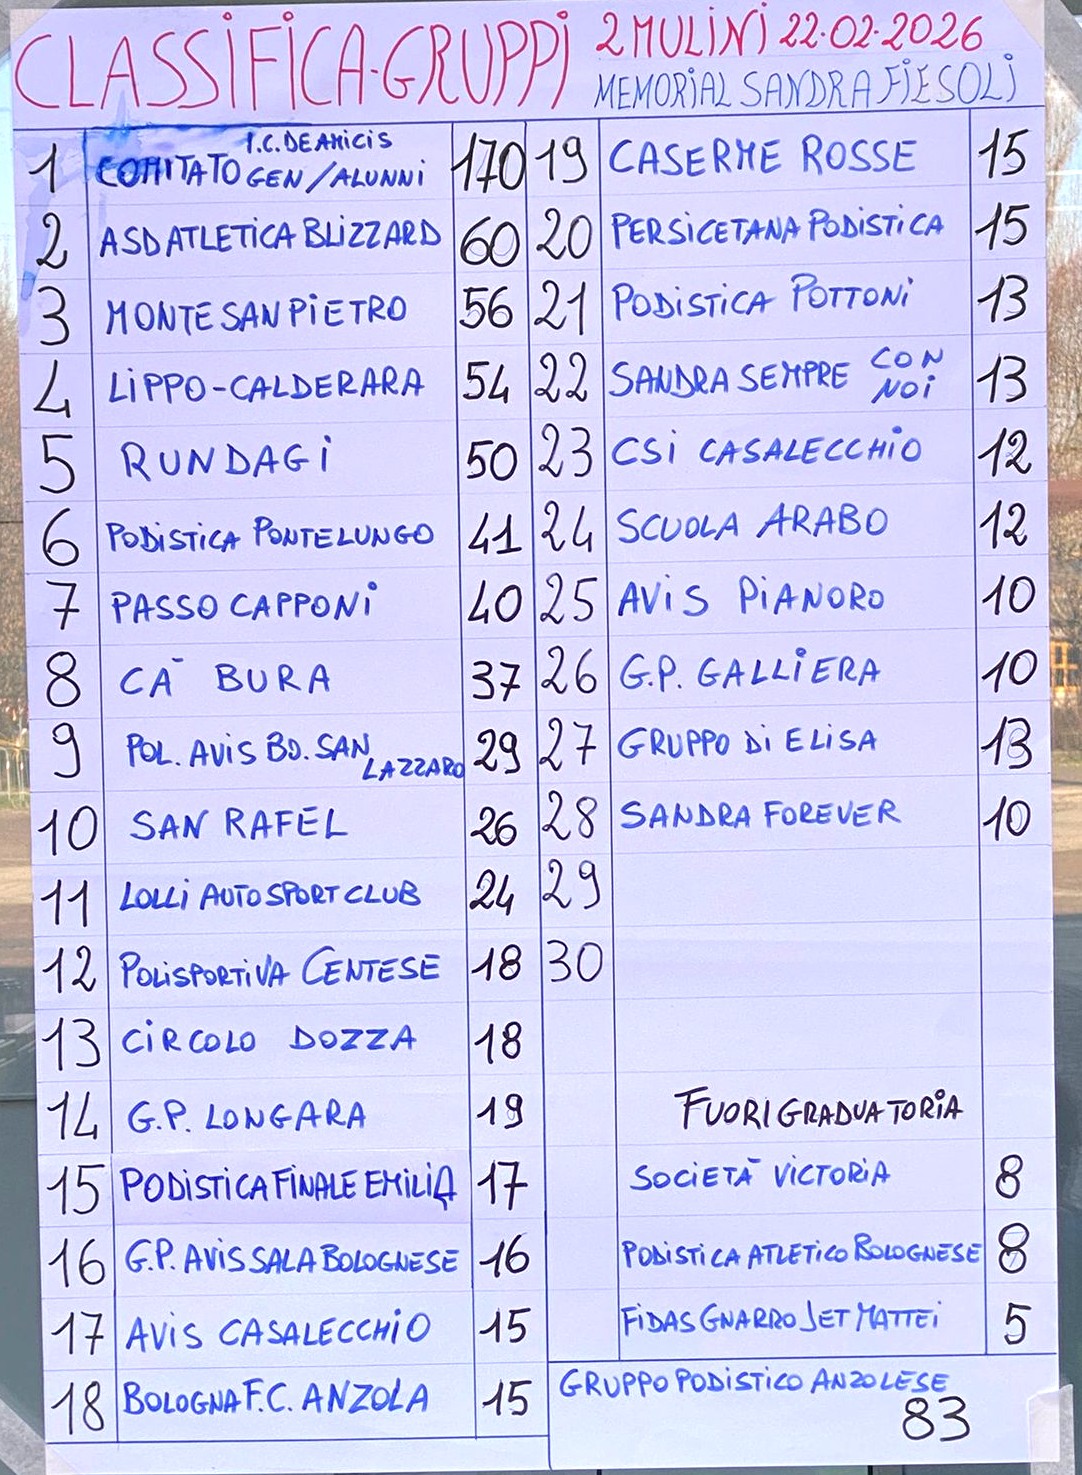 CLASSIFICA-GRUPPI 2 MULINI 22.02.2026
MEMORIAL SANDRA FIESOLI
1 COMITATO I.C. DE AMICIS GEN/ALUNNI 170
2 ASD ATLETICA BLIZZARD 60
3 MONTE SAN PIETRO 56
4 LIPPO-CALDERARA 54
5 RUNDAGI 50
6 PODISTICA PONTELUNGO 41
7 PASSO CAPPONI 40
8 CA BURA 37
9 POL. AVIS BO. SAN LAZZARO 29
10 SAN RAFEL 26
11 LOLLI AUTO SPORT CLUB 24
12 POLISPORTIVA CENTESE 18
13 CIRCOLO DOZZA 18
14 G.P. LONGARA 19
15 PODISTICA FINALE EMILIA 17
16 G.P. AVIS SALA BOLOGNESE 16
17 AVIS CASALECCHIO 15
18 BOLOGNA F.C. ANZOLA 15
19 CASERME ROSSE 15
20 PERSICETANA PODISTICA 15
21 PODISTICA POTTONI 13
22 SANDRA SEMPRE CON NOI 13
23 CSI CASALECCHIO 12
24 SCUOLA ARABO 12
25 AVIS PIANORO 10
26 G.P. GALLIERA 10
27 GRUPPO DI ELISA 13
28 SANDRA FOREVER 10
29
30
FUORI GRADUATORIA
SOCIETÀ VICTORIA 8
PODISTICA ATLETICO BOLOGNESE 8
FIDAS GNARRO JET MATTEI 5
GRUPPO PODISTICO ANZOLESE
83